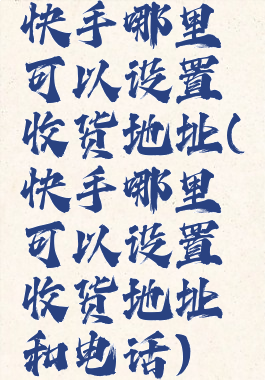 快手哪里
可以设置
收货地址(
快手哪里
可以设置
收货地址
和电话)